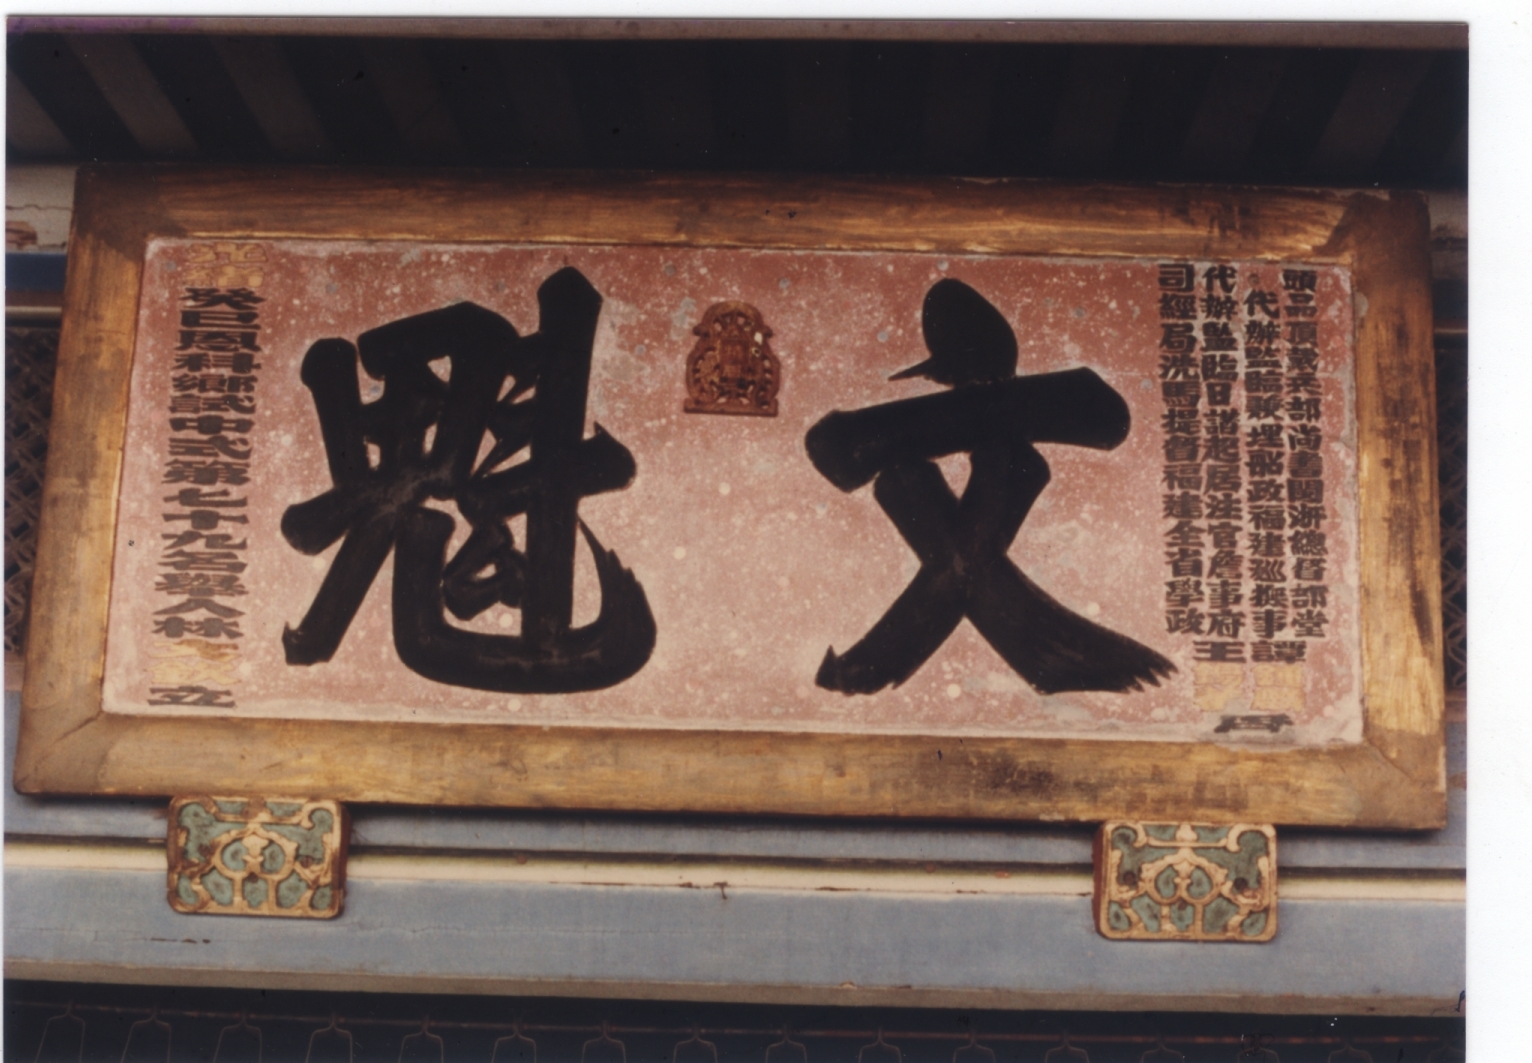 頭品頂戴兵部尚書閩浙總督部堂
代辦監臨兼理船政福建巡撫事譚
代辦監臨日講起居注官詹事府
司經局洗馬提督福建全省學政王
為
文魁
光緒癸巳恩科鄉試中式第七十九名舉人林文欽立